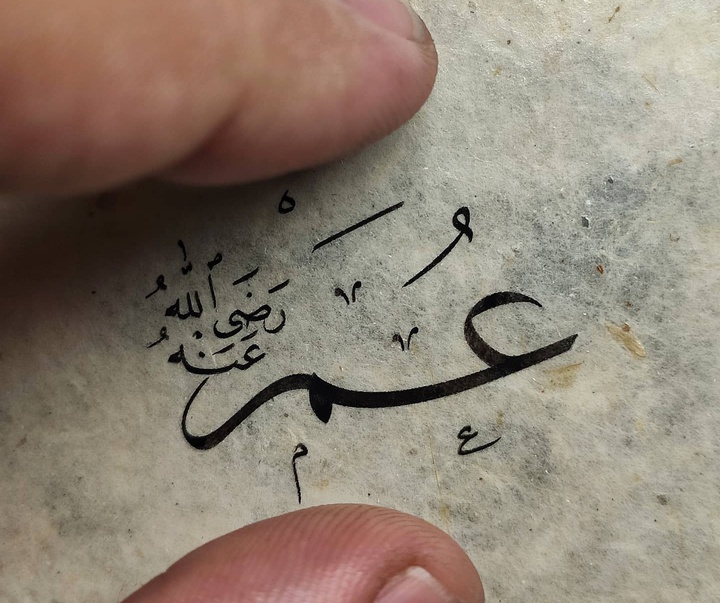 عُمَرْ
رَضَی اللّٰهُ
عَنْهُ